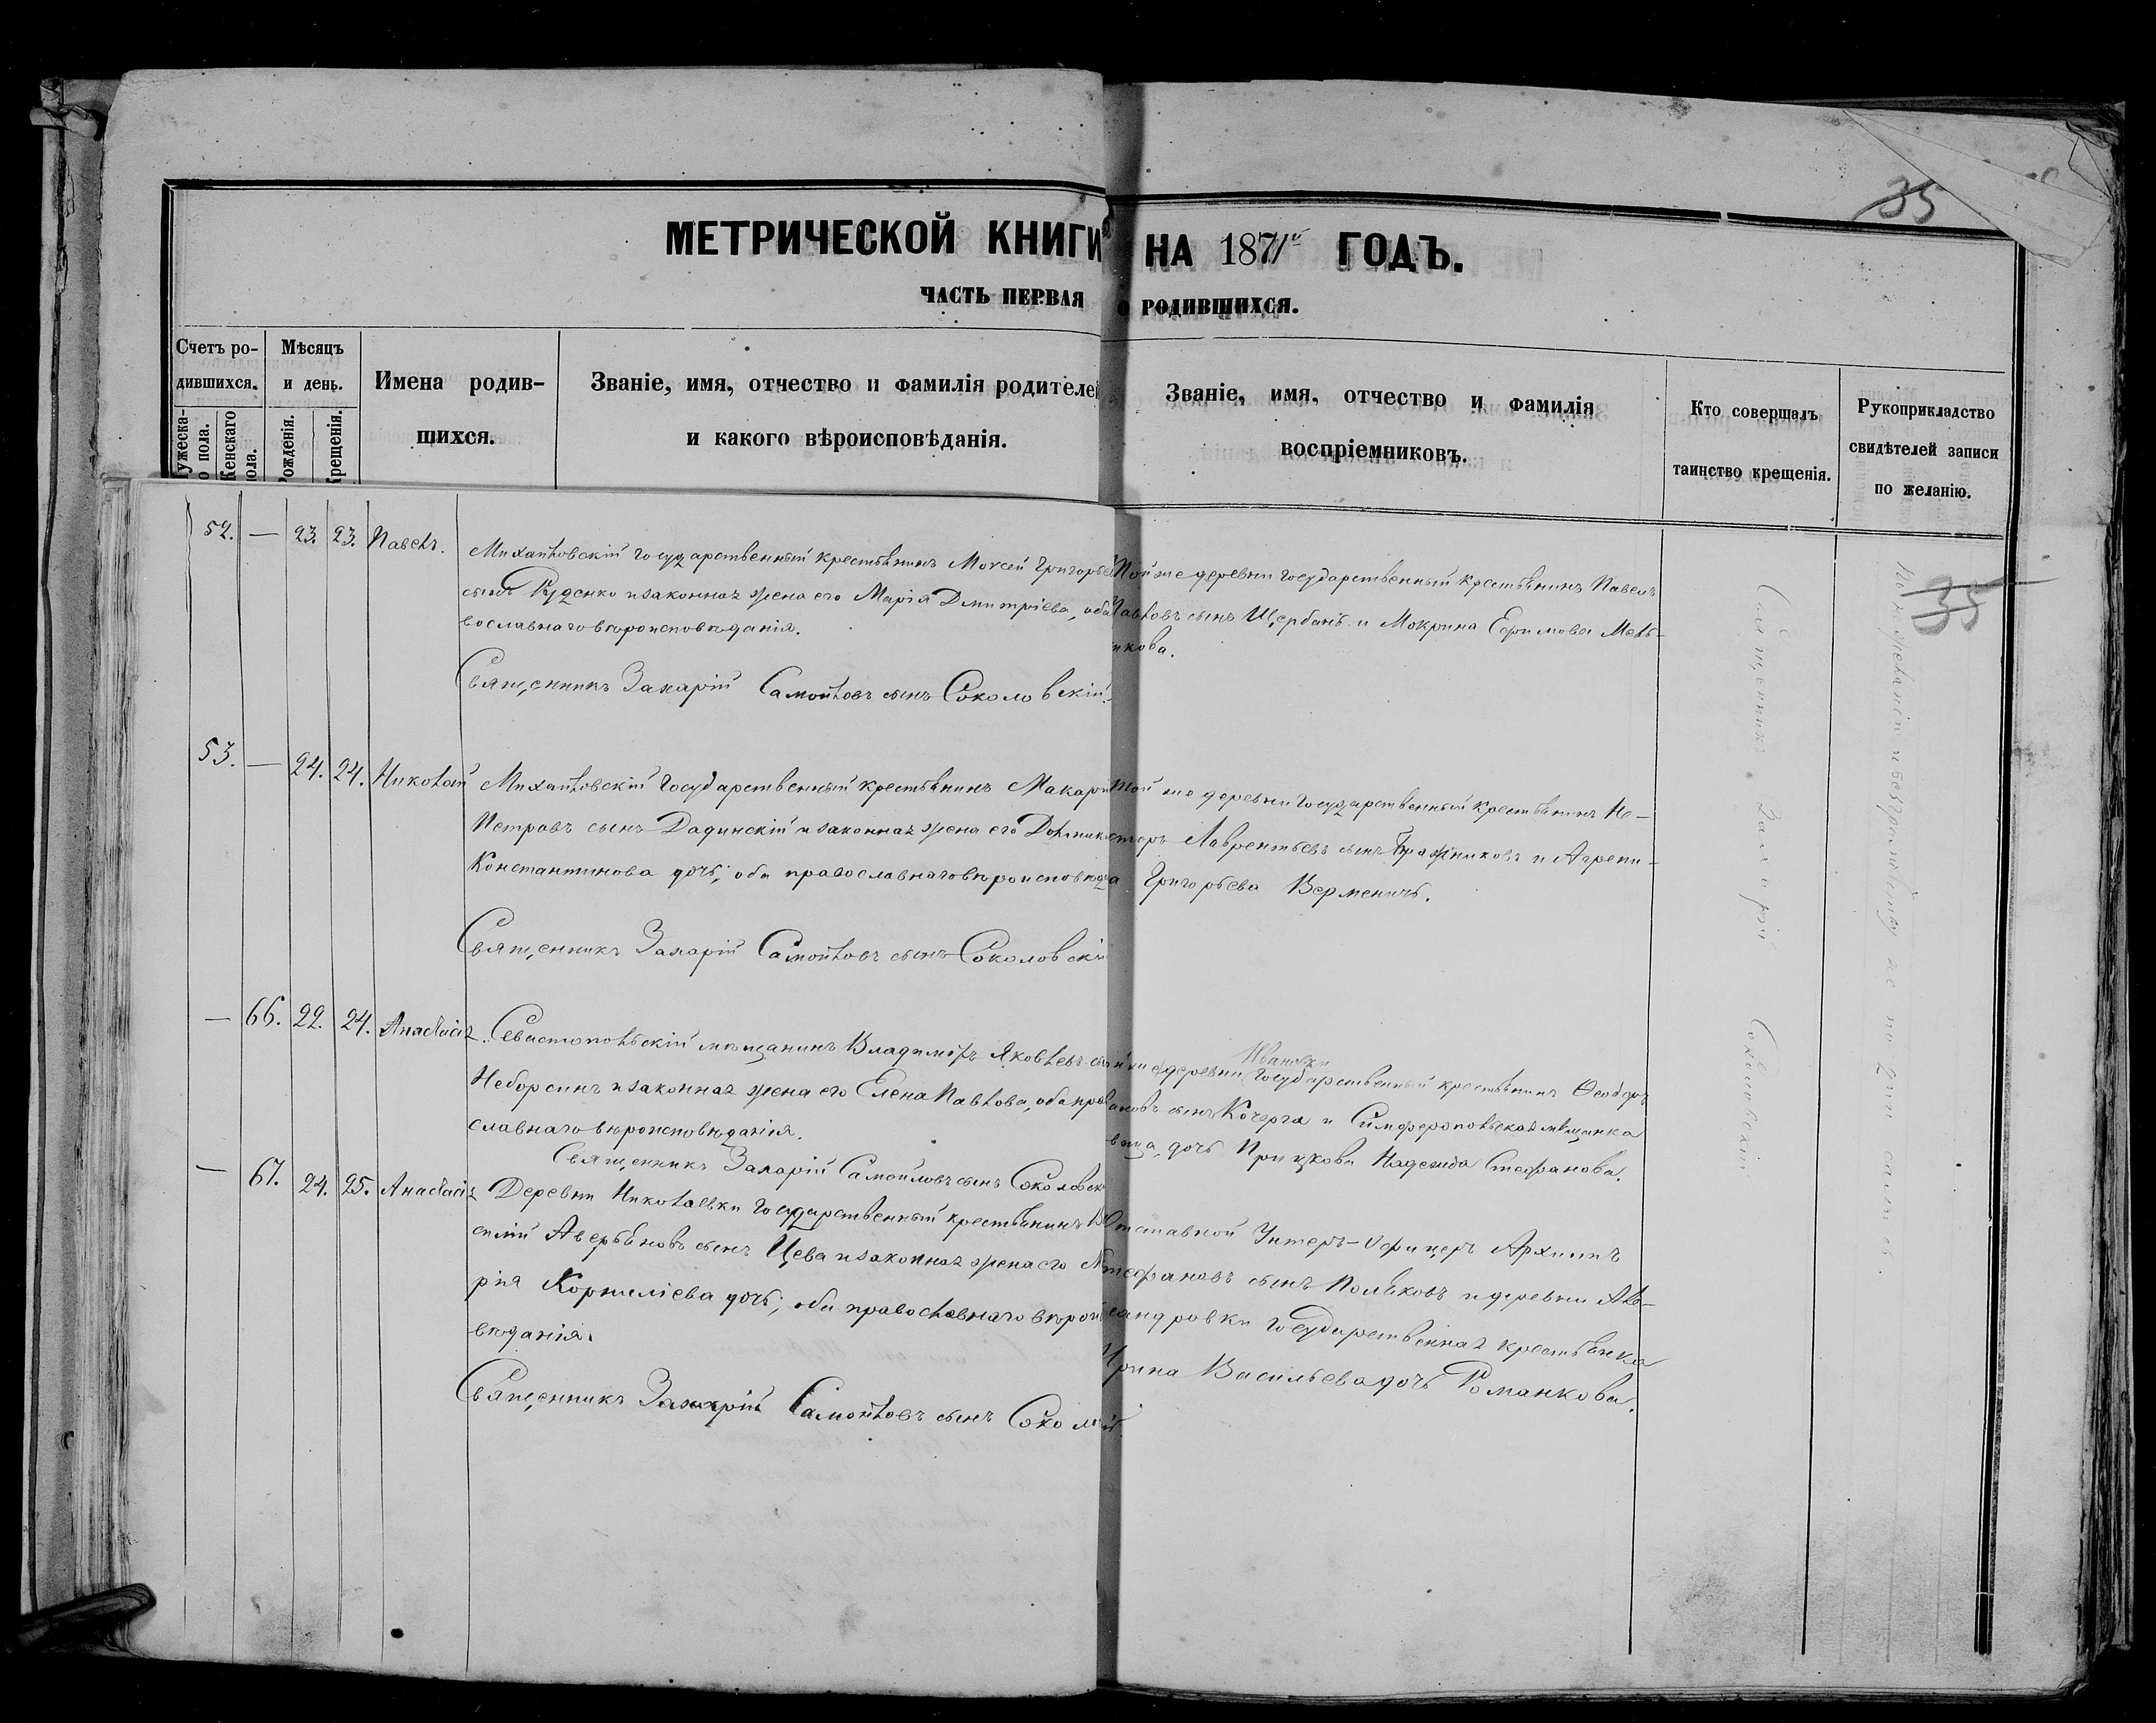 35
МЕТРИЧЕСКОЙ КНИГИ НА 1871й ГОДЪ.
ЧАСТЬ ПЕРВАЯ О РОДИВШИХСЯ.
Счетъ ро-
дившихся.
Мужеска-
го пола.
Женскаго
пола.
Мѣсяцъ
и день.
Рожденія.
Крещенія.
Имена родив-
щихся.
Званіе, имя, отчество и фамилія родителей
и какого вѣроисповѣданія.
Званіе, имя, отчество и фамилія
воспріемниковъ.
Кто совершалъ
таинство крещенія.
Рукоприкладство
свидѣтелей записи
по желанію.
52. — 23. 23. Павелъ.
Михайловскій государственный крестьянинъ Моѵсей Григорьев
сынъ Руденко и законная жена его Марія Дмитріева, оба
вославнаго вѣроисповѣданія.
Священникъ Захарій Самойловъ сынъ Соколовскій.
Той же деревни государственный крестьянинъ Павелъ
Павловъ сынъ Щербань и Мокрина Ефимова Мель-
никова.
53. — 24. 24. Николай
Михайловскій государственный крестьянинъ Макарій
Петровъ сынъ Дадинскій и законная жена его Домник
Константинова дочь; оба православнаго вѣроисповѣда
Священникъ Захарій Самойловъ сынъ Соколовскій
Той же деревни государственный крестьянинъ Не-
сторъ Лаврентьевъ сынъ Бражниковъ и Агрепи-
а Григорьева Верменичъ.
— 66. 22. 24. Анастасія.
Севастопольскій мѣщанинъ Владиміръ Яковлевъ сын
Неборсинъ и законная жена его Елена Павлова, оба прав
славнаго вѣроисповѣданія.
Священникъ Захарій Самойловъ сынъ Соколовск
й же деревни Ивановки государственный крестьянинъ Ѳеодоръ
ановъ сынъ Кочерга и Симферопольская мѣщанка
вица, дочь Прицкова Надежда Стефанова.
— 67. 24. 25. Анастасія
Деревни Николаевки государственный крестьянинъ В
силій Аверьяновъ сынъ Цева и законная жена его М
рія Корниліева дочь; оба православнаго вѣрои
вѣданія.
Священникъ Захарій Самойловъ сынъ Соколо
Отставной Унтеръ-Офицеръ Архипъ
Стефановъ сынъ Поляковъ и деревни Але-
сандровки государственная крестьянка
Ирина Васильева дочь Романкова.
Священникъ Захарій Соколовскій
35